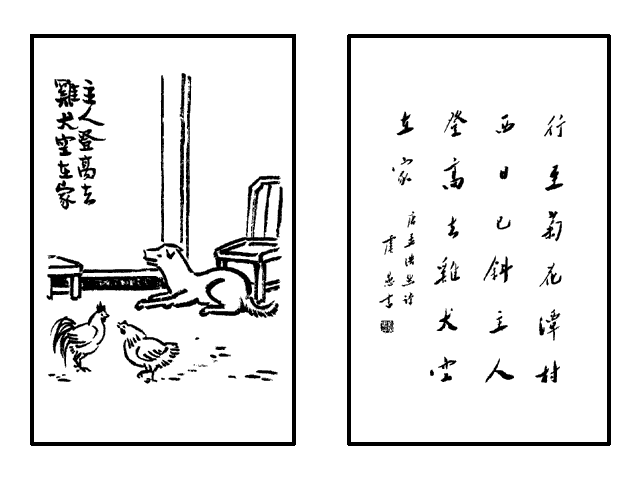 主人登高去
雞犬空在家
行至菊花潭村
西日已斜主人
登高去雞犬空
在家
唐孟浩然詩
虞愚書